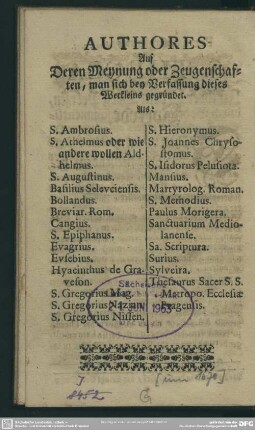 AUTHORES
Auf
Deren Meynung oder Zeugenschaf-
ten, man sich bey Verfassung dieses
Werkleins gegründet.
Als:
S. Ambrosius.
S. Athelmus oder wie
andere wollen Ald-
helmus.
S. Augustinus.
Basilius Seleuciensis.
Bollandus.
Breviar. Rom.
Cangius.
S. Epiphanus.
Evagrius.
Eusebius.
Hyacinthus de Gra-
veson.
S. Gregorius Mag.
S. Gregorius Nazian.
S. Gregorius Nissen.
S. Hieronymus.
S. Joannes Chryso-
stomus.
S. Isidorus Pelusiota.
Mansius.
Martyrolog. Roman.
S. Methodius.
Paulus Morigera.
Sanctuarium Medio-
lanense.
Sa. Scriptura.
Surius.
Sylveira.
Thesaurus Sacer S. S.
Metropo. Ecclesiæ
Pragensis.
1963
J
8452